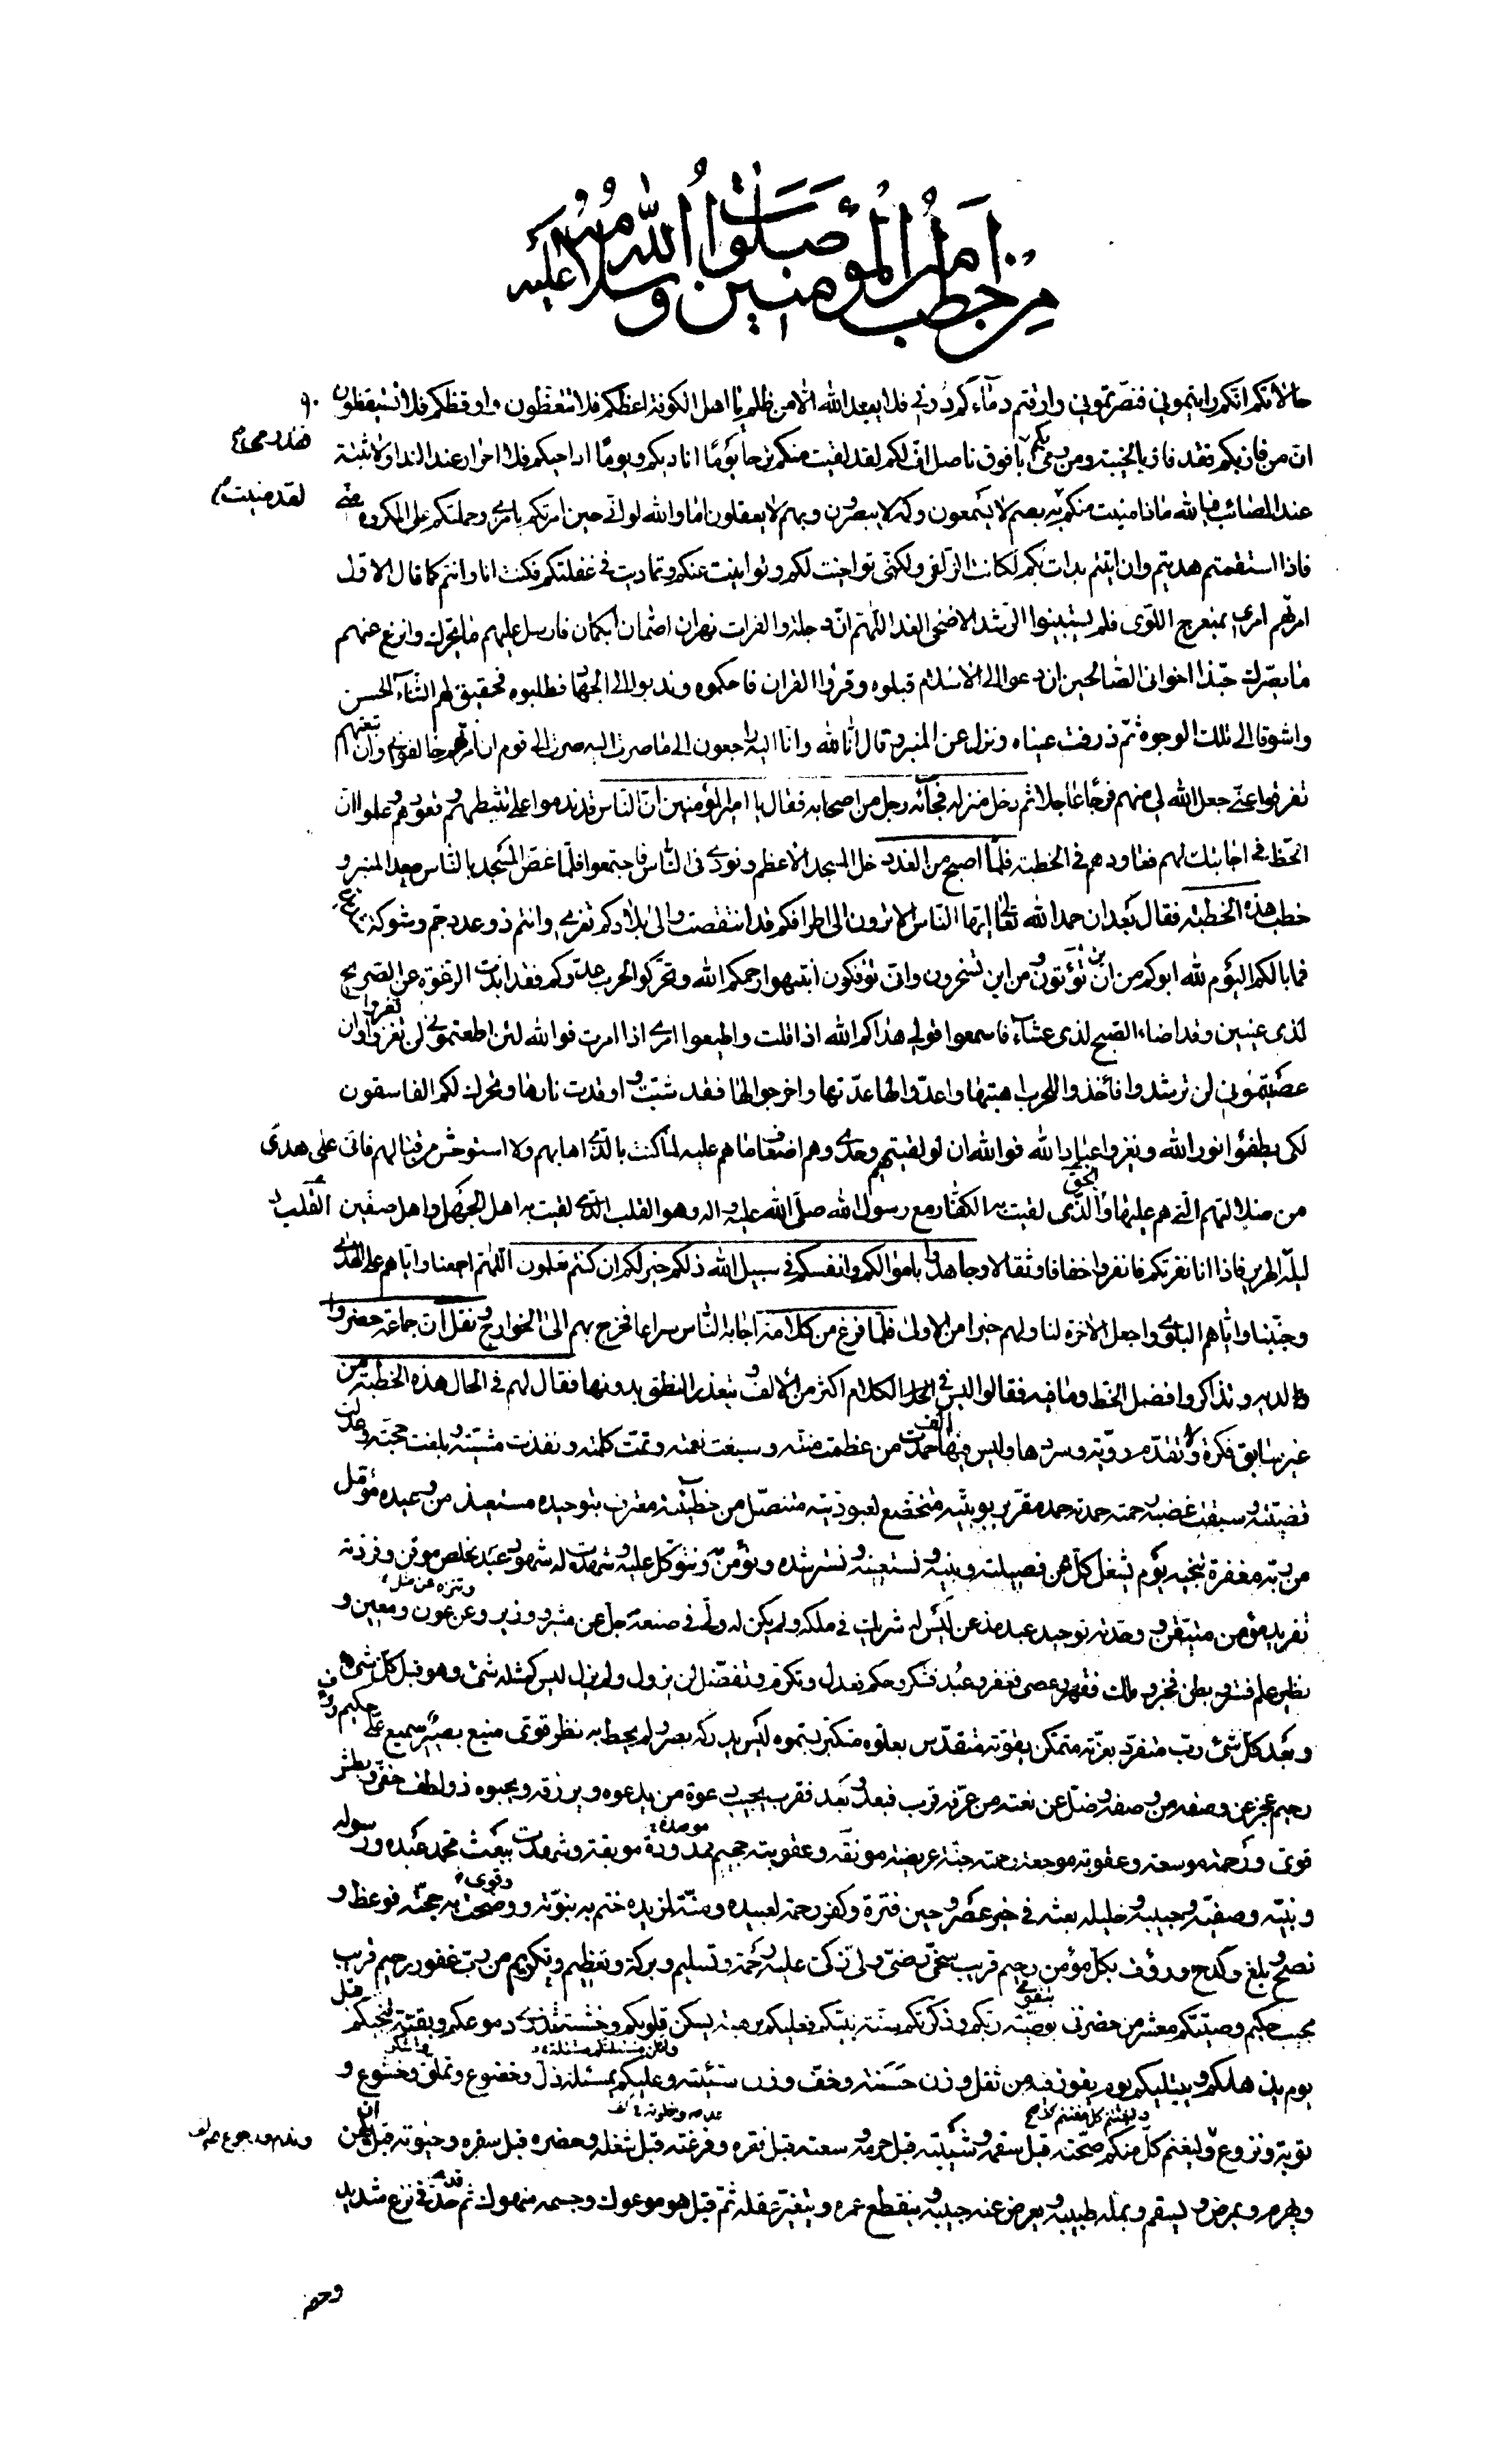 من خطب امير المؤمنين صلوات الله وسلامه عليه
حالاتكم انكم رايتموني فنصرتموني وارقتم دماءكم دوني فلا يبعد الله الا من ظلم يا اهل الكوفة اعظكم فلا تتعظون واوقظكم فلا تستيقظون
ان من فازبكم فقد فاز بالخيبة ومن رمى بكم يا فوق ناصل اف لكم لقد لقيت منكم ترحا يوما اناديكم ويوما اناجيكم فلا احرار عند النداء ولا ثقة
عند المصائب فيا لله ماذا منيت منكم به بصم لا يسمعون وكمه لا يبصرون وبهم لا يعقلون اما والله لو اني حين امرتكم بامري وحملتكم على المكروه
فاذا استقمتم هديتم وان ابيتم بدات بكم لكانت الزلفى ولكني تواخيت لكم وتوانيت عنكم وتماديت في غفلتكم فكنت انا وانتم كما قال الاول
امرتهم امري بمنعرج اللوى فلم يستبينوا الرشد الا ضحى الغد اللهم ان دجلة والفرات نهران اصمان ابكمان فارسل عليهم ماء بحرك وانزع عنهم
ماء نصرك حبذا اخواني الصالحين ان دعوا الى الاسلام قبلوه وقرؤا القران فاحكموه وندبوا الى الجهاد فطلبوه فحقيق لهم الثناء الحسن
واشوقا الى تلك الوجوه ثم ذرفت عيناه ونزل عن المنبر وقال انا لله وانا اليه راجعون الى ما صرت اليه صرت الى قوم ان امرتهم خالفوني وان تبعتهم
تفرقوا عني جعل الله لي منهم فرجا عاجلا ثم دخل منزله فجائه رجل من اصحابه فقال يا امير المؤمنين ان الناس قد ندموا على تثبطهم وقعودهم وعلموا ان
الحظ في اجابتك لهم فعاودهم في الخطبة فلما اصبح من الغد دخل المسجد الاعظم ونودي في الناس فاجتمعوا فلما غص المسجد بالناس صعد المنبر و
خطب هذه الخطبة فقال بعد ان حمد الله تعالى ايها الناس الا ترون الى اطرافكم قد انتقصت والى بلادكم تغزى وانتم ذو عدد جم وشوكة
فما بالكم اليوم لله ابوكم من اين تؤتون ومن اين تسخرون وانى تؤفكون انتبهوا رحمكم الله وتحركوا لحرب عدوكم فقد ابدت الرغوة عن الصريح
لذي عينين وقد اضاء الصبح لذي عشاء فاسمعوا قولي هداكم الله اذا قلت واطيعوا امري اذا امرت فوالله لئن اطعتموني لن تغووا وان
عصيتموني لن ترشدوا فأخذوا للحرب اهبتها واعدوا لها عدتها واخرجوا لها فقد شبت واوقدت نارها وتحرك لكم الفاسقون
لكي يطفؤا نور الله ويغزوا عباد الله فوالله ان لو لقيتهم وحدي وهم اضعاف ما هم عليه لما كنت بالذي اهابهم ولا استوحش من قتالهم فاني على هدى
من ضلالتهم التي هم عليها والحق الذي لقيت به الكفار مع رسول الله صلى الله عليه واله وهو القلب الذي لقيت به اهل الجمل واهل صفين
ليلة الهرير فاذا انا نفرتكم فانفروا خفافا وثقالا وجاهدوا باموالكم وانفسكم في سبيل الله ذلكم خير لكم ان كنتم تعلمون اللهم اجمعنا واياهم على الهدى
وجنبنا واياهم البلوى واجعل الاخرة لنا ولهم خيرا من الاولى فلما فرغ من كلامه اجابه الناس سراعا فخرج بهم الى الخوارج ونقل ان جماعة حضروا
لديه وتذاكروا فضل الخط وما فيه فقالوا ليس في الكلام اكثر من الالف ويتعذر النطق بدونها فقال لهم في الحال هذه الخطبة من
غير سابق فكرة ولا تقدم روية وسردها وليس فيها الف حمدت من عظمت منته وسبغت نعمته وتمت كلمته ونفذت مشيته وبلغت حجته وعدلت
قضيته وسبقت غضبه رحمته حمدته حمد مقر بربوبيته متخضع لعبوديته متنصل من خطيئته معترف بتوحيده مستعيذ من وعيده مؤمل
من ربه مغفرة تنجيه يوم يشغل كل عن فصيلته وبنيه ونستعينه ونسترشده ونؤمن به ونتوكل عليه وشهدت له شهود عبد مخلص موقن وفردته
تفريد مؤمن متيقن ووحدته توحيد عبد مذعن ليس له شريك في ملكه ولم يكن له ولي في صنعه جل عن مشير ووزير وعن عون ومعين و
نظير علم فستر وبطن فخبر وملك فقهر وعصي فغفر وعبد فشكر وحكم فعدل وتكرم وتفضل لن يزول ولم يزل ليس كمثله شئ وهو قبل كل شئ
وبعد كل شئ رب متفرد بعزته متمكن بقوته متقدس بعلوه متكبر بسموه ليس يدركه بصر ولم يحط به نظر قوي منيع بصير سميع علي حكيم رؤف
رحيم عجز عن وصفه من وصفه وضل عن نعته من عرفه قرب فبعد وبعد فقرب يجيب دعوة من يدعوه ويرزقه ويحبوه ذو لطف خفي وبطش
قوي ورحمة موسعة وعقوبة موجعة رحمته جنة عريضة مونقة وعقوبته جحيم ممدودة موبقة وشهدت ببعث محمد عبده ورسوله
ونبيه وصفيه وحبيبه وخليله بعثه في خير عصر وحين فترة وكفر رحمة لعبيده ومنة لمزيده ختم به نبوته ووضحت به حجته فوعظ و
نصح وبلغ وكدح ورؤف بكل مؤمن رحيم قريب سخي رضي ولي زكي عليه رحمة وتسليم وبركة وتعظيم وتكريم من رب غفور رحيم قريب
مجيب حكيم وصيتكم معشر من حضرني بوصية ربكم وذكرتكم بسنة نبيكم فعليكم برهبة يسكن قلوبكم وخشية تذري دموعكم وبتقية تنجيكم قبل
يوم يذهلكم ويبتليكم يوم يفوز فيه من ثقل وزن حسنته وخف وزن سيئته وعليكم بمسئلة ذل وخضوع وتملق وخشوع و
توبة ونزوع وليغنم كل منكم صحته قبل سقمه وشيبته قبل هرمه وسعته قبل فقره وفرغته قبل شغله وحضره قبل سفره وحيوته قبل ان يكن
ويهرم ويمرض ويسقم ويمله طبيبه ويعرض عنه حبيبه وينقطع عمره ويتغير عقله ثم قيل هو موعوك وجسمه منهوك ثم جد في نزع شديد